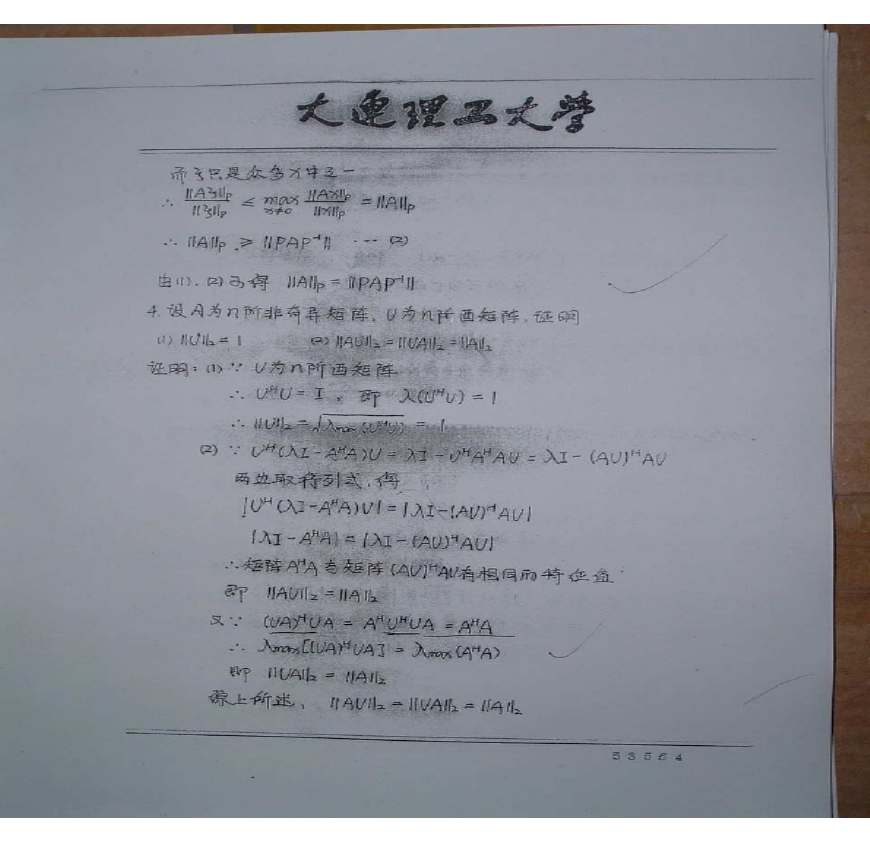 大连理工大学
而ξ只是众多x中之一
∴ ||Aξ||p / ||ξ||p ≤ max x≠0 ||Ax||p / ||x||p = ||A||p
∴ ||A||p ≥ ||PAP⁻¹|| ··· (2)
由(1)、(2)可得 ||A||p = ||PAP⁻¹||
4. 设A为n阶非奇异矩阵, U为n阶酉矩阵, 证明
(1) ||U||₂ = 1 (2) ||AU||₂ = ||UA||₂ = ||A||₂
证明: (1) ∵ U为n阶酉矩阵
∴ UᴴU = I, 即 λ(UᴴU) = 1
∴ ||U||₂ = √λmax(UᴴU) = 1
(2) ∵ Uᴴ(λI - AᴴA)U = λI - UᴴAᴴAU = λI - (AU)ᴴAU
两边取行列式, 得
|Uᴴ(λI - AᴴA)U| = |λI - (AU)ᴴAU|
|λI - AᴴA| = |λI - (AU)ᴴAU|
∴ 矩阵AᴴA与矩阵(AU)ᴴAU有相同的特征值
即 ||AU||₂ = ||A||₂
又∵ (UA)ᴴUA = AᴴUᴴUA = AᴴA
∴ λmax[(UA)ᴴUA] = λmax(AᴴA)
即 ||UA||₂ = ||A||₂
综上所述, ||AU||₂ = ||UA||₂ = ||A||₂
53564